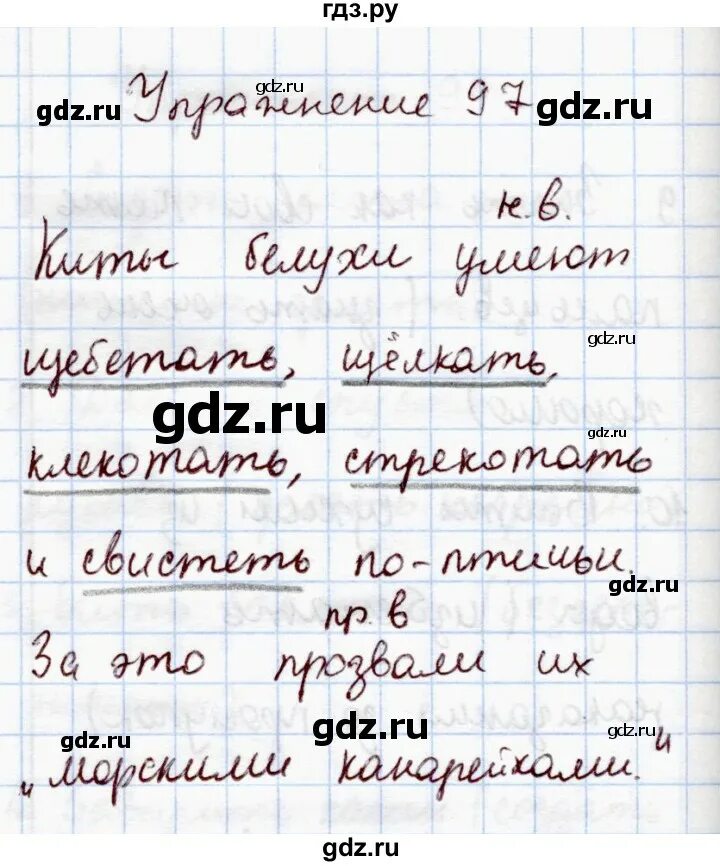 гдз.ру
gdz.ru
gdz.ru Упражнение 97 gdz.ru
н.в.
Киты белухи умеют
gdz.ru
щебетать, щёлкать,
gdz.ru
gdz.ru
клекотать, стрекотать
и свистеть по-птичьи.
gdz.ru
пр.в
За это прозвали их
gdz.ru
gdz.ru
gdz.ru
„морскими канарейками."
gdz.ru